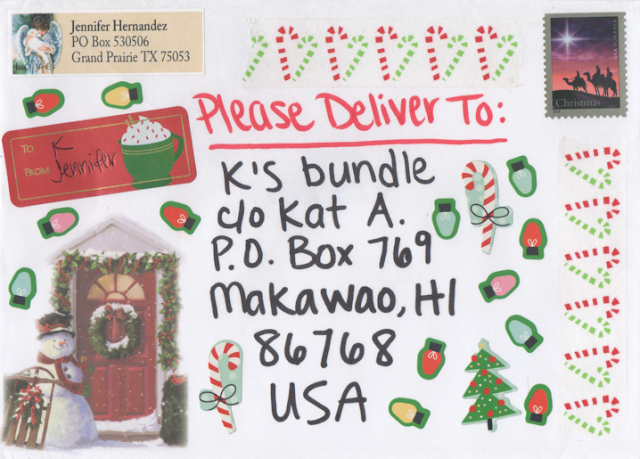 Jennifer Hernandez
PO Box 530506
Grand Prairie TX 75053
Please Deliver To:
TO K
FROM Jennifer
K's bundle
c/o Kat A.
P.O. Box 769
Makawao, HI
86768
USA
Christmas